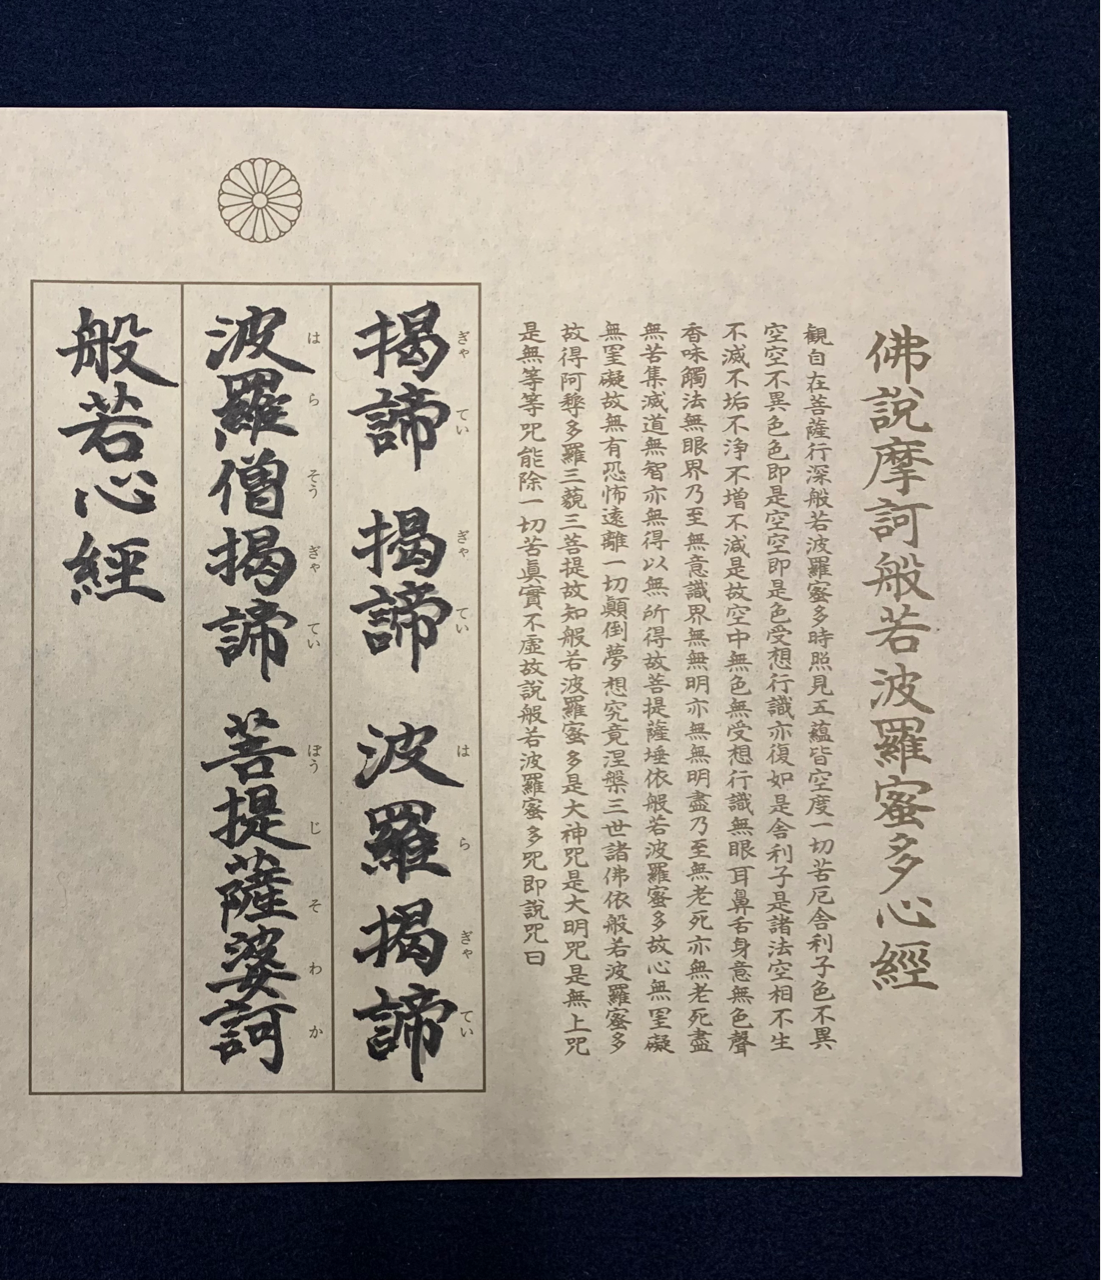 佛說摩訶般若波羅蜜多心經
観自在菩薩行深般若波羅蜜多時照見五蘊皆空度一切苦厄舎利子色不異
空空不異色色即是空空即是色受想行識亦復如是舎利子是諸法空相不生
不滅不垢不浄不增不減是故空中無色無受想行識無眼耳鼻舌身意無色聲
香味觸法無眼界乃至無意識界無無明亦無無明盡乃至無老死亦無老死盡
無苦集滅道無智亦無得以無所得故菩提薩埵依般若波羅蜜多故心無罣礙
無罣礙故無有恐怖遠離一切顛倒夢想究竟涅槃三世諸佛依般若波羅蜜多
故得阿耨多羅三藐三菩提故知般若波羅蜜多是大神咒是大明咒是無上咒
是無等等咒能除一切苦眞實不虛故說般若波羅蜜多咒即說咒曰
ぎゃ てい ぎゃ てい は ら ぎゃ てい
揭諦 揭諦 波羅揭諦
は ら そう ぎゃ てい ぼう じ そ わ か
波羅僧揭諦 菩提薩婆訶
般若心經